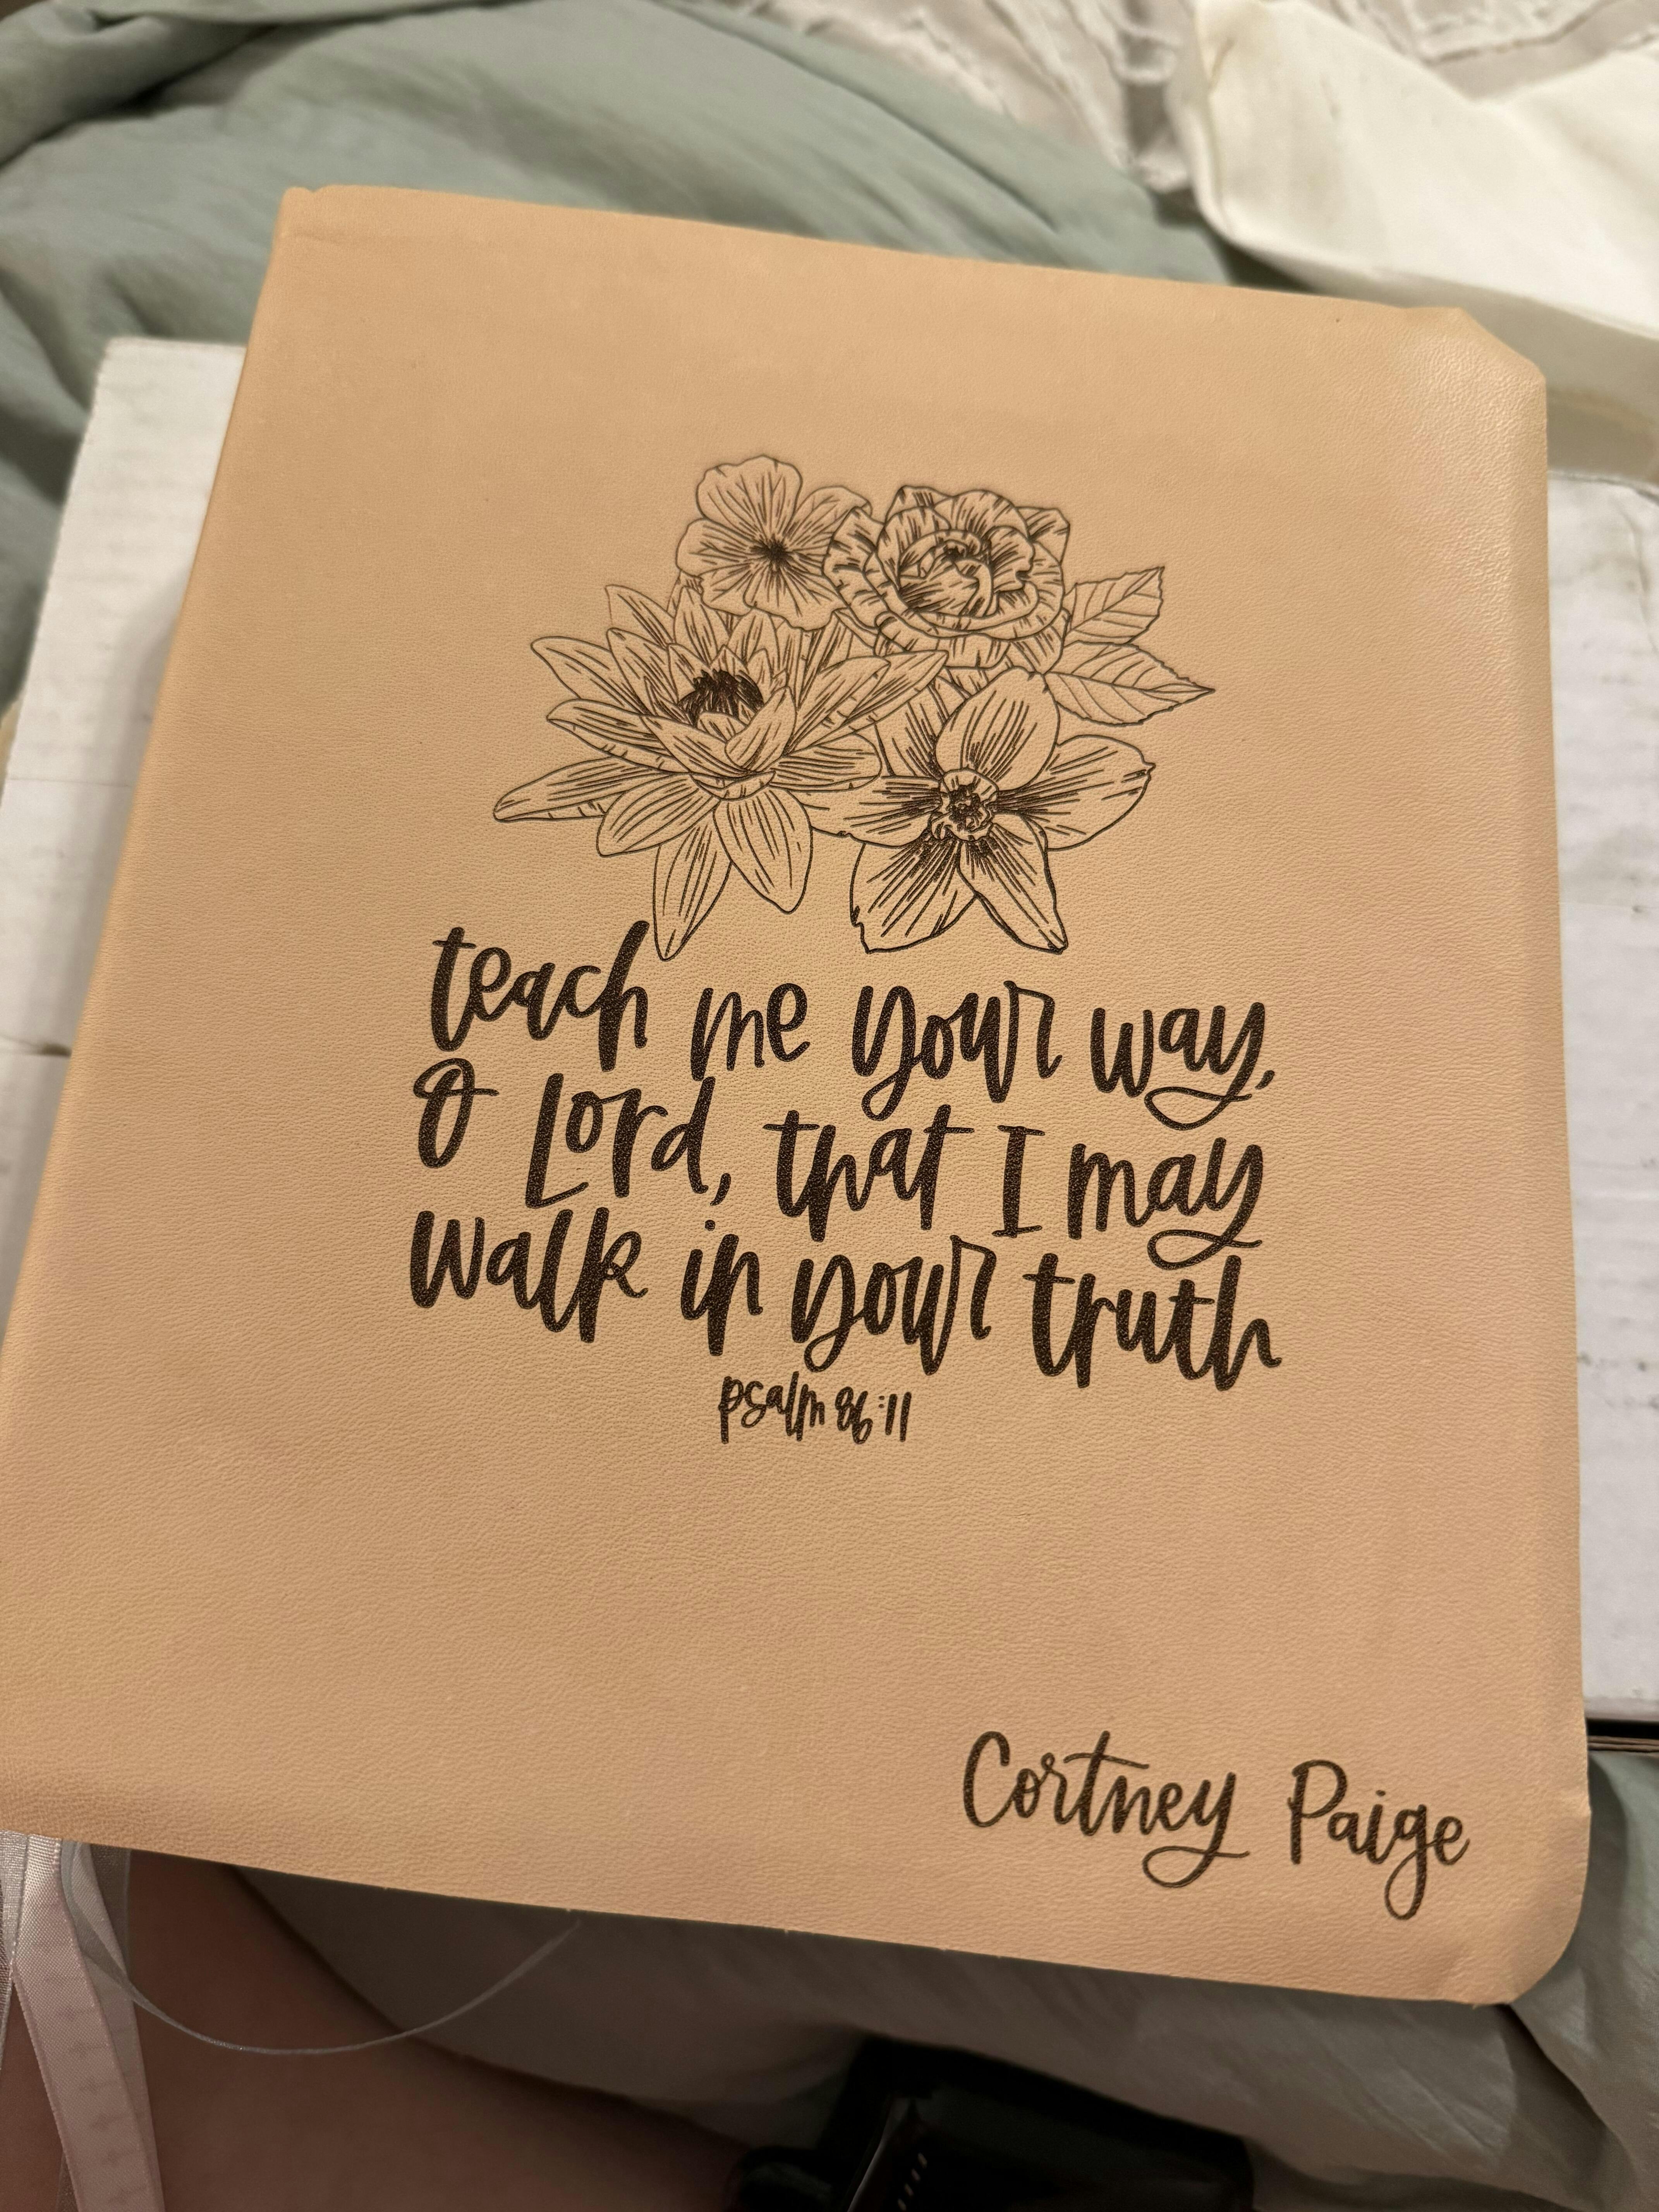 teach me your way,
O Lord, that I may
walk in your truth
psalm 86:11
Cortney Paige